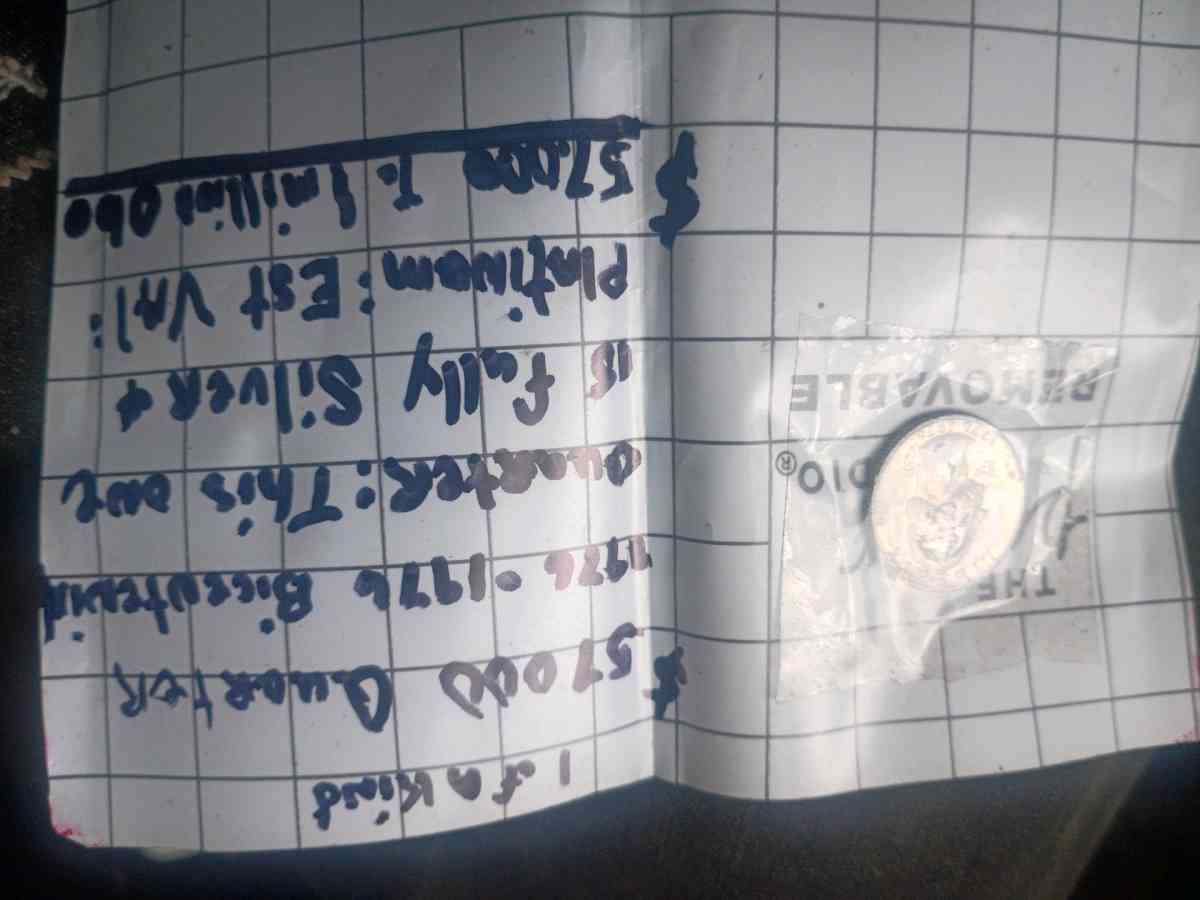 1 of a Kind
$57000 Quarter
1776-1976 Bicentenial
Quarter: This one
is fully Silver &
Platinum: Est Val:
$57,000 To 1 million Obo
THE
DIO®
REMOVABLE